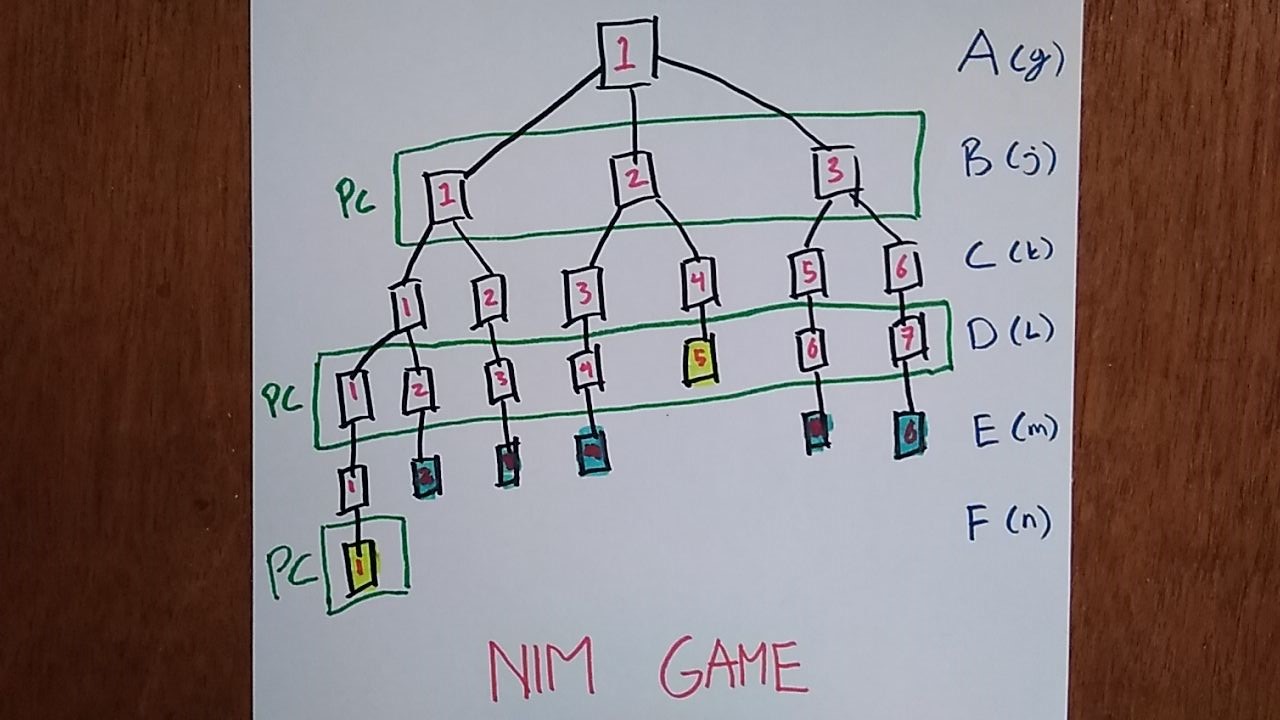 1 A (g)
PC 1 2 3 B (j)
1 2 3 4 5 6 C (k)
PC 1 2 3 4 5 6 7 D (L)
1 2 6 E (m)
PC 1 F (n)
NIM GAME